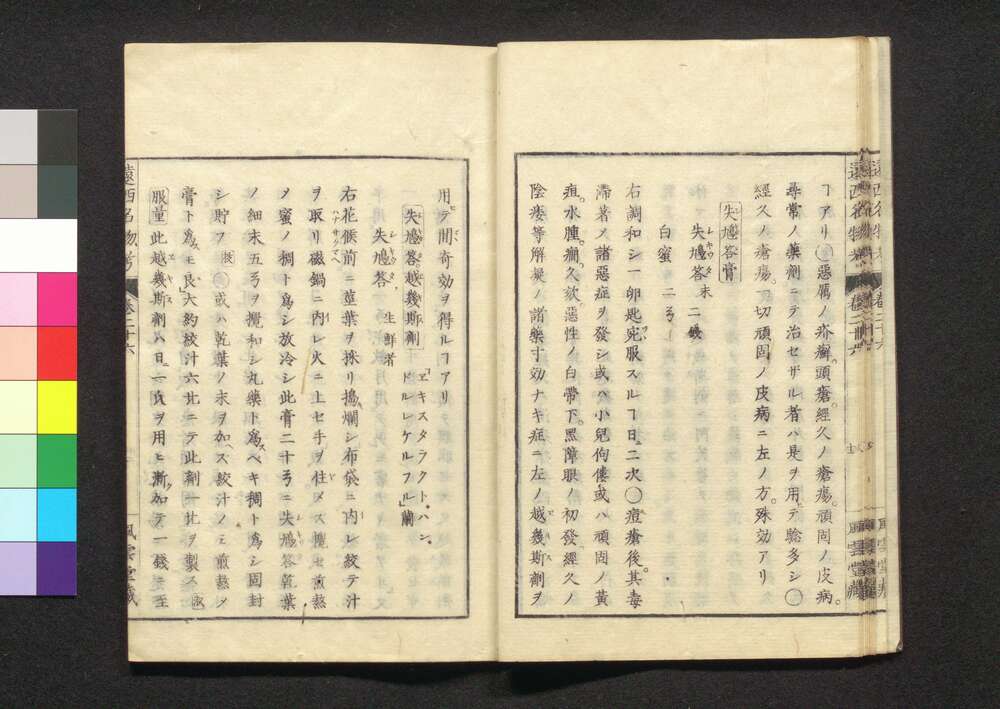 ヿアリ○惡厲ノ疥癬。頭瘡。經久ノ瘡瘍。頑固ノ皮病。
尋常ノ藥劑ニテ治セザル者ハ是ヲ用テ驗多シ○
經久ノ瘡瘍。一切頑固ノ皮病ニ左ノ方。殊効アリ
失鳩荅膏
失鳩荅 末 二錢
白蜜 二ㄢ
右調和シ一卵匙宛服スルヿ日二次○痘瘡後。其毒
滯著ノ諸惡症ヲ發シ或ハ小兒佝僂。或ハ頑固ノ黃
疸。水腫。癇。久欬。惡性ノ白帶下。黑障眼ノ初發。經久ノ
陰痿等解凝ノ諸藥寸効ナキ症ニ左ノ越幾斯劑ヲ
用テ間奇効ヲ得ルヿアリ
失鳩荅越幾斯劑 「エキスタラクト、ハン、ドルレケルフル」蘭
失鳩荅 生鮮者
右花候前ニ莖葉ヲ採リ搗爛シ布袋ニ内レ絞テ汁
ヲ取リ磁鍋ニ内レ火ニ上セ手ヲ住メズ攪セ煎熬
メ蜜ノ稠ト爲シ放冷シ此膏二十ㄢニ失鳩荅乾葉
ノ細末五ㄢヲ攪和シ丸藥ト爲スベキ稠ト爲シ固封
シ貯フ 扶 ○或ハ乾葉ノ末ヲ加ヘズ絞汁ノミ煎熬メ
膏ト爲スモ良大約絞汁六
服量此越幾斯劑ハ日ニ一
遠西名物考 卷二十六 風雲堂藏